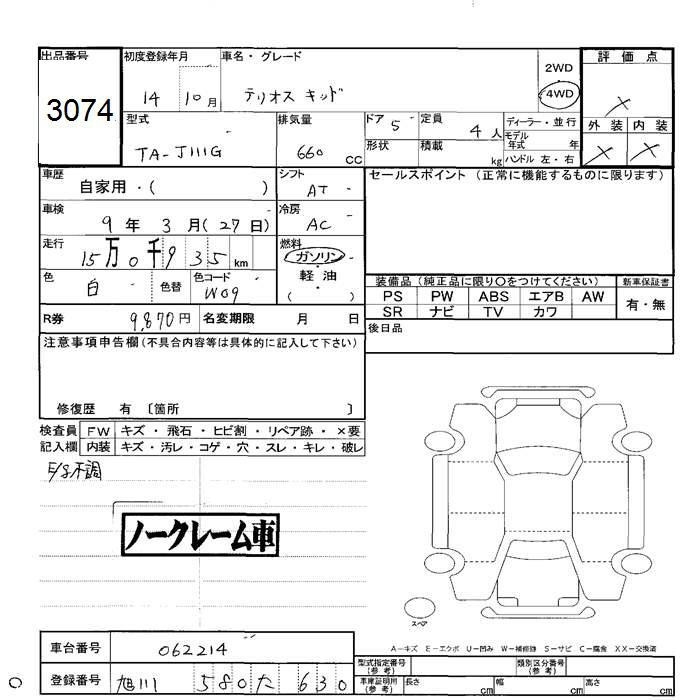 出品番号 初度登録年月 車名・グレード 2WD 評価点
3074 14 10月 テリオスキッド 4WD ×
型式 排気量 ドア 5 定員 4人 ディーラー・並行 外装 内装
モデル年式 年
TA-J111G 660 CC 形状 積載 kg ハンドル 左・右 × ×
車歴 自家用・( ) シフト AT セールスポイント (正常に機能するものに限ります)
車検 9年 3月(27日) 冷房 AC
走行 15万0千935km 燃料 ガソリン・
色 白 色替 色コード W09 軽油
( )
装備品 (純正品に限り○をつけてください) 新車保証書
PS PW ABS エアB AW 有・無
SR ナビ TV カワ
R券 9,870円 名変期限 月 日 後日品
注意事項申告欄(不具合内容等は具体的に記入して下さい)
修復歴 有 〔箇所 〕
検査員 FW キズ・飛石・ヒビ割・リペア跡・×要
記入欄 内装 キズ・汚レ・コゲ・穴・スレ・キレ・破レ
E/S不調
ノークレーム車
スペア
車台番号 062214 A-キズ E-エクボ U-凹み W-補修跡 S-サビ C-腐食 XX-交換済
型式指定番号(参考) 類別区分番号(参考)
登録番号 旭川 580 た 630 車庫証明用(参考) 長さ cm 幅 cm 高さ cm